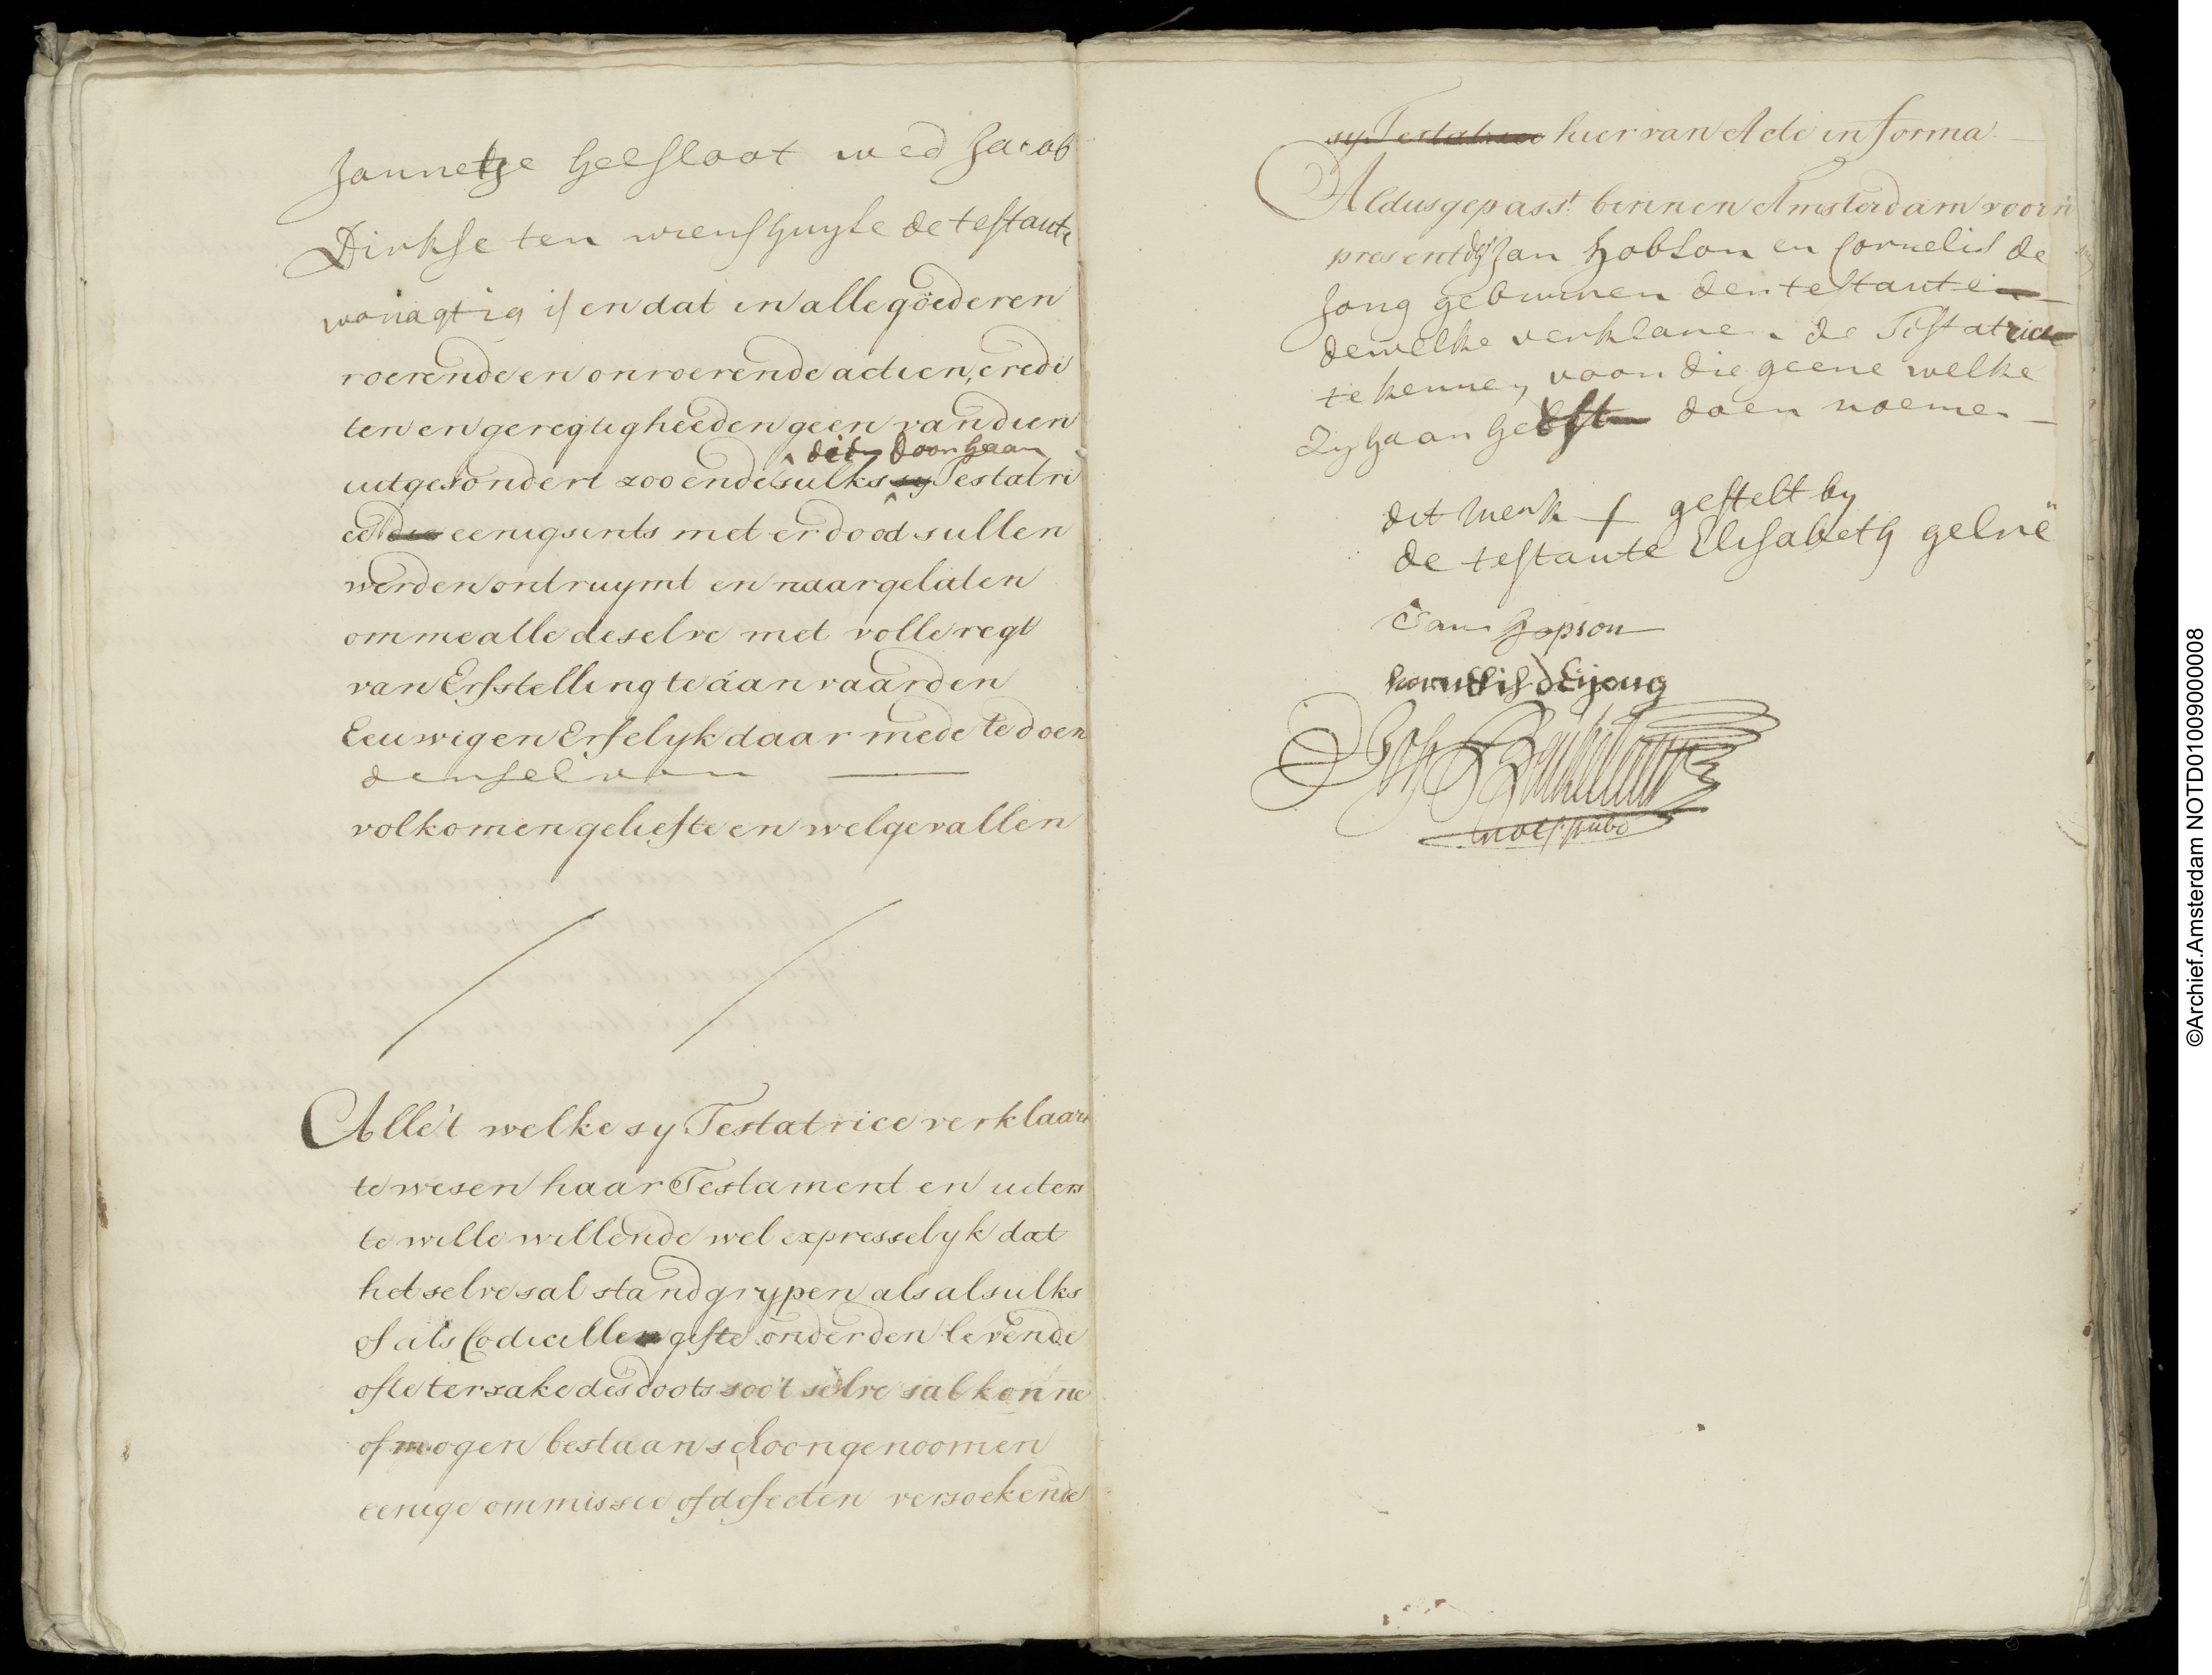 Jannetje Geesloot wed Jacob
Dirkse ten wiens huyse de testante
wonagtig is en dat in alle goederen
roerende en onroerende actien, credi
ten en geregtigheeden geen van dien
dit doorhaan
uitgesondert zoo ende sulks sy Testatri
ce die eenigsints met er dood sullen
werden ontruymt en naargelaten
omme alle deselve met volle regt
van Erfstelling te aanvaarden
Eeuwig en Erfelyk daar mede te doen
denselven
volkomen geliefte en welgevallen
Alle 't welke sy Testatrice verklaart
te wesen haar Testament en uiters
te wille willende wel expresselyk dat
het selve sal stand grypen als alsulks
of als Codicille gifte onder den levende
ofte ter zake des doots soo 't selve sal konne
of mogen bestaan schoon genoomen
eenige ommissie of defecten versoekende
sy Testatrice hier van Acte in forma
Aldus gepasst. binnen Amsterdam voorn
present Jan Hobson en Cornelis de
Jong gebuuren der testante
dewelke verklaren de Testatrice
te kennen voor die geene welke
Zy haar heeft doen noemen
dit merk gestelt by
de testante Elisabeth gelne
Jan Hopson
kornelis deijong
not. pub.
©Archief.Amsterdam NOTD01009000008